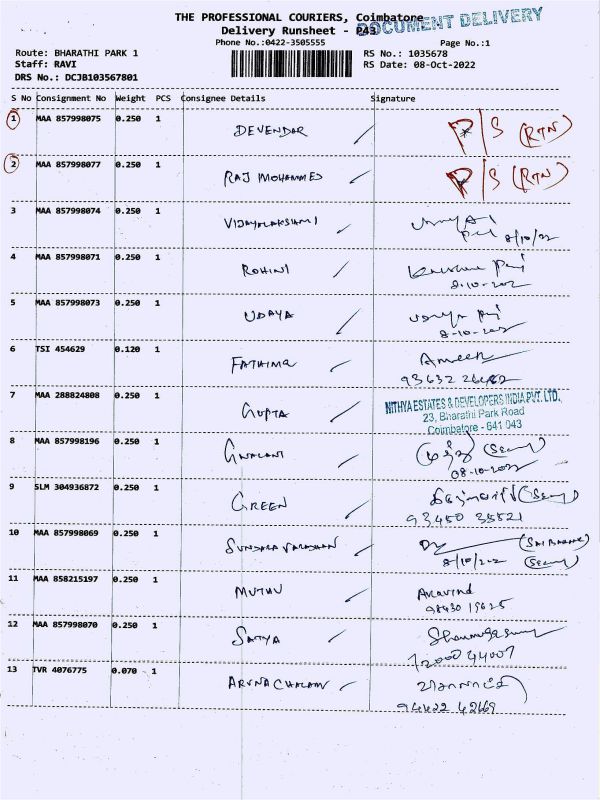 THE PROFESSIONAL COURIERS, Coimbatore
DOCUMENT DELIVERY
Delivery Runsheet - P43
Phone No.:0422-3505555 Page No.:1
Route: BHARATHI PARK 1 RS No.: 1035678
Staff: RAVI RS Date: 08-Oct-2022
DRS No.: DCJB103567801
S No Consignment No Weight PCS Consignee Details Signature
1 MAA 857998075 0.250 1 DEVENDAR P/S (RTN)
2 MAA 857998077 0.250 1 RAJ MOHAMMED P/S (RTN)
3 MAA 857998074 0.250 1 VIJAYALAKSHMI
8/10/22
4 MAA 857998071 0.250 1 ROHINI
5 MAA 857998073 0.250 1 UDAYA
6 TSI 454629 0.120 1 FATHIMA Ameer
7 MAA 288824808 0.250 1 GUPTA NITHYA ESTATES & DEVELOPERS INDIA PVT. LTD.,
23, Bharathi Park Road
Coimbatore - 641 043
8 MAA 857998196 0.250 1
08-10-2022
9 SLM 304936872 0.250 1 GREEN
93450 35521
10 MAA 857998069 0.250 1 SUNDARA VARADHAN
11 MAA 858215197 0.250 1 MUTHU Aravind
98430 19625
12 MAA 857998070 0.250 1 SATYA
72000 44007
13 TVR 4076775 0.070 1 ARUNACHALAM
94422 42669